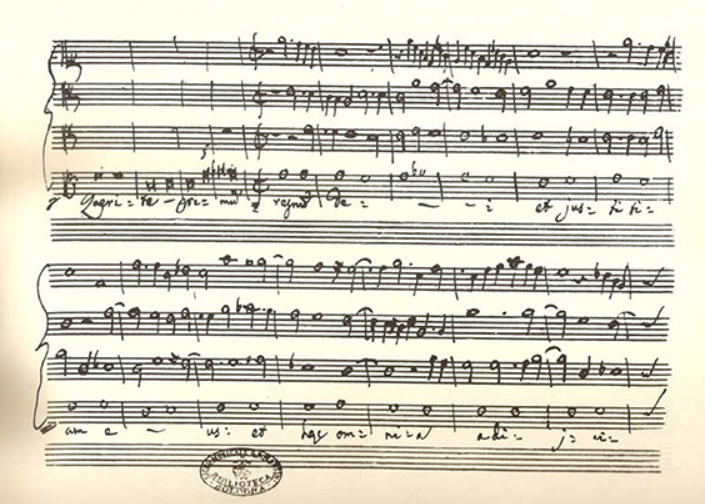 Quæri= te - pri= mū regnū De= - - i et jus= ti ti=
am e - us: et hæc om= ni= a adi= j= ci=
BIBLIOTECA
BOLOGNA